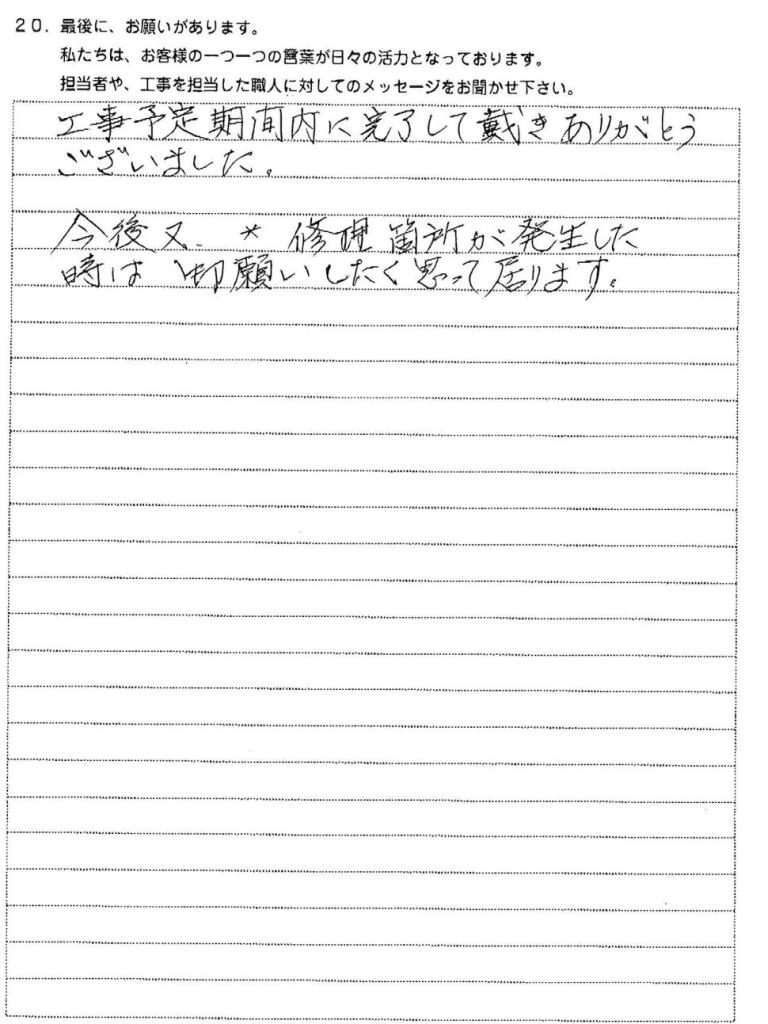 20. 最後に、お願いがあります。
私たちは、お客様の一つ一つの言葉が日々の活力となっております。
担当者や、工事を担当した職人に対してのメッセージをお聞かせ下さい。
工事予定期間内に完了して戴きありがとう
ございました。
今後又、* 修理箇所が発生した
時は 願いしたく思って居ります。